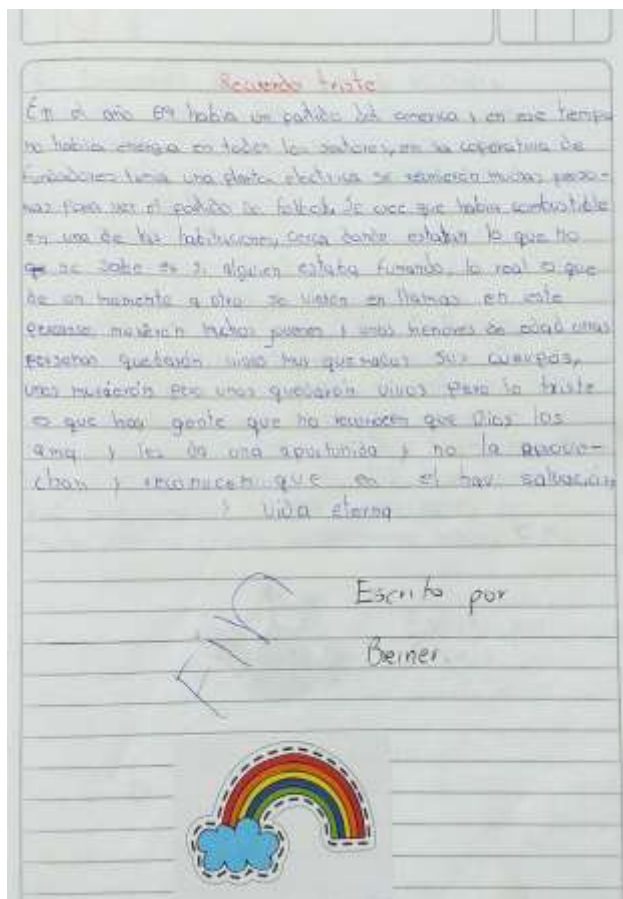 Recuerdo triste
En el año 89 había un partido del america y en ese tiempo
no había energia en todos los sectores, en la coperativa de
Fundadores tenia una planta electrica se reunierón muchas perso-
nas para ver el partido de futbol. Se cree que había combustible
en una de las habitaciones, cerca donde estaban lo que no
se sabe es si alguien estaba fumando, lo real es que
de un momento a otro se vieron en llamas en este
percanse murierón muchos jovenes y unos menores de edad unas
personas quedarón vivas muy quemadas sus cuerpos,
unos murierón pero unos quedarón vivos pero lo triste
es que hay gente que no reconocen que Dios los
ama y les da una oportunida y no la aprove-
chan y reconocen que en el hay salvación
y vida eterna
Fin
Escrito por
Beiner.